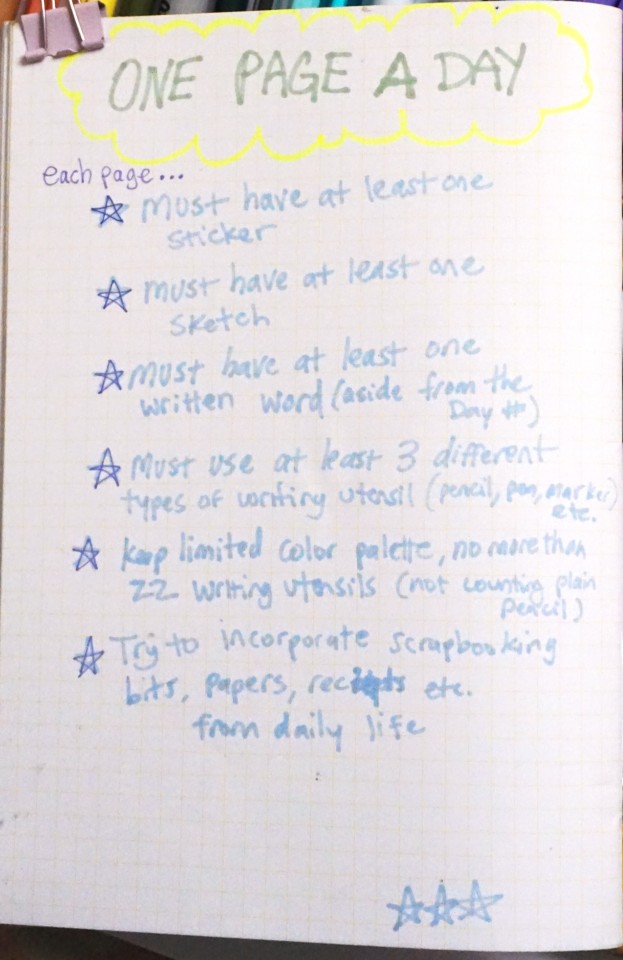 ONE PAGE A DAY
each page...
must have at least one
sticker
must have at least one
sketch
must have at least one
written word (aside from the
Day #)
must use at least 3 different
types of writing utensil (pencil, pen, marker)
etc.
keep limited color palette, no more than
22 writing utensils (not counting plain
pencil)
Try to incorporate scrapbooking
bits, papers, reciepts etc.
from daily life